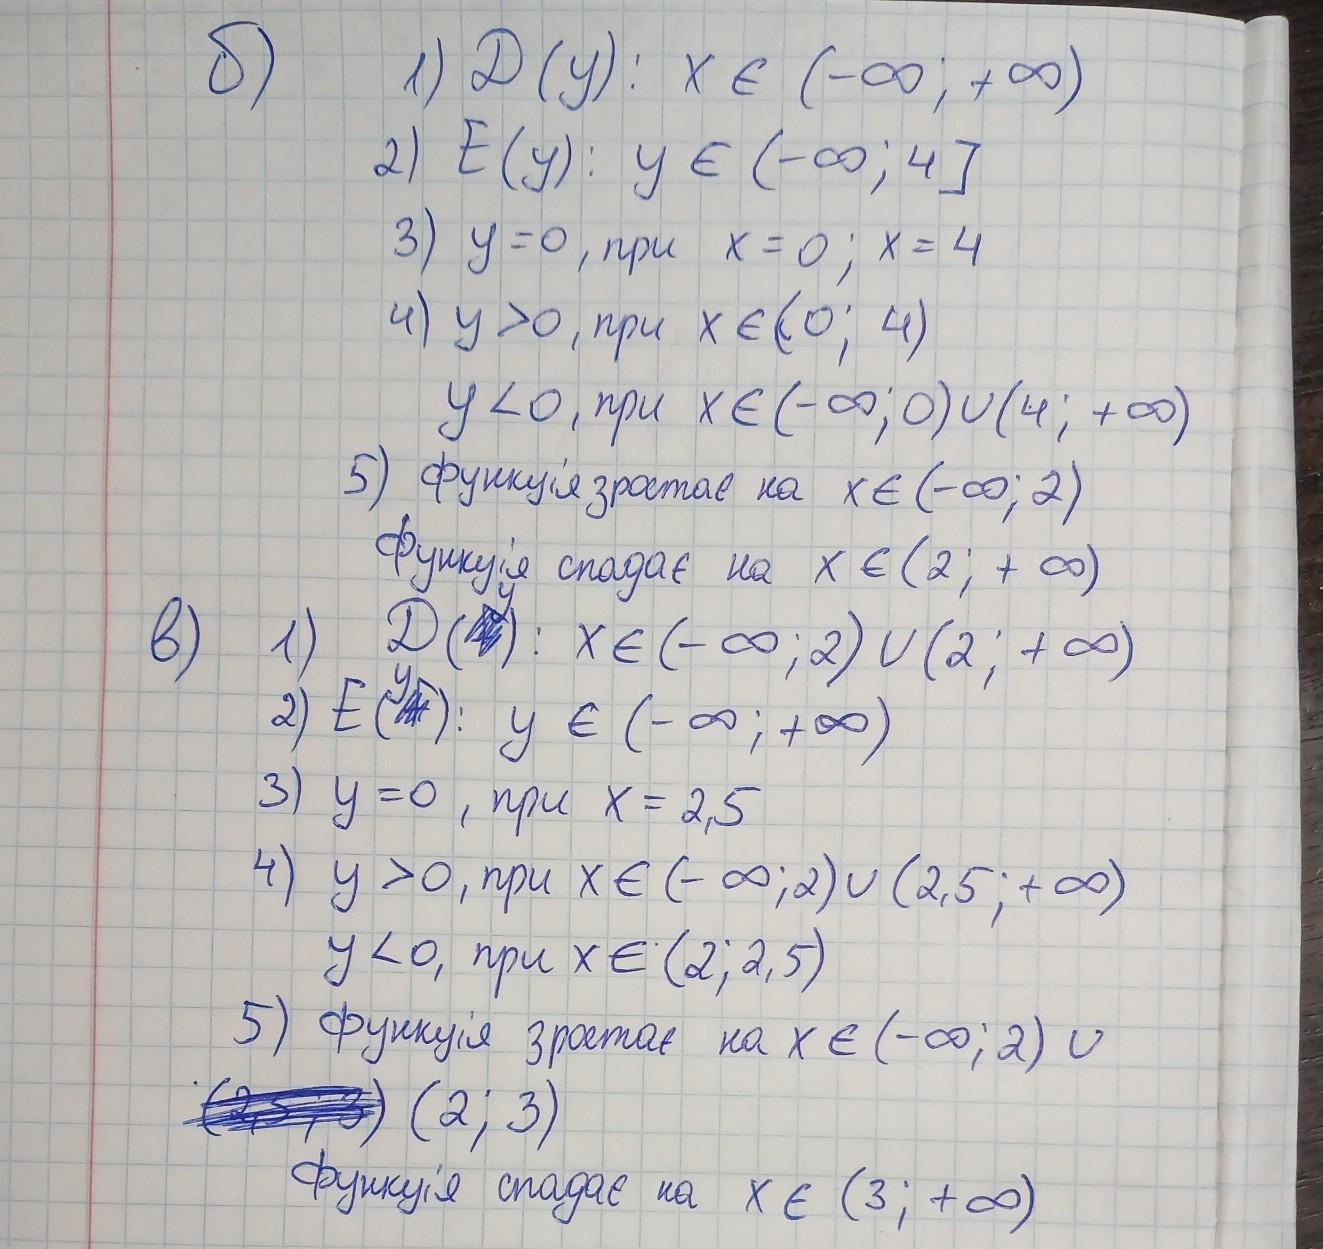 б) 1) D(y): x ∈ (-∞; +∞)
2) E(y): y ∈ (-∞; 4]
3) y=0, при x=0; x=4
4) y>0, при x∈(0; 4)
y<0, при x∈(-∞;0)∪(4; +∞)
5) функція зростає на x∈(-∞;2)
Функція спадає на x∈(2; +∞)
в) 1) D(y): x∈(-∞;2)∪(2; +∞)
2) E(y): y ∈ (-∞; +∞)
3) y=0, при x=2,5
4) y>0, при x∈(-∞;2)∪(2,5; +∞)
y<0, при x∈(2;2,5)
5) функція зростає на x∈(-∞;2)∪
(2,5;3) (2; 3)
Функція спадає на x∈(3; +∞)